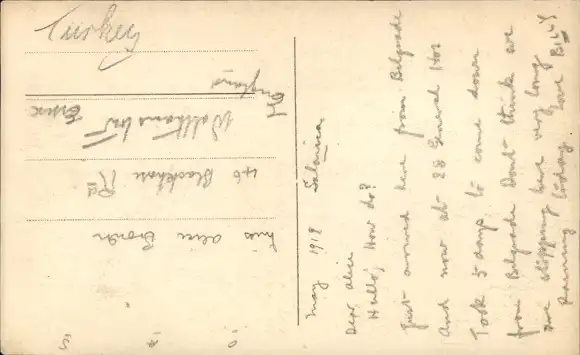 Turkey
Miss Alice
46 Blackhorse Rd
Walthamstow
Essex
England
May 1918 Salonica
Dear Alice
Hullo, How do?
Just arrived here from Belgrade
And now at 28 General Hos
Took 5 days to come down
from Belgrade Don't think we
are stopping here very long
Raining today
Love Billy